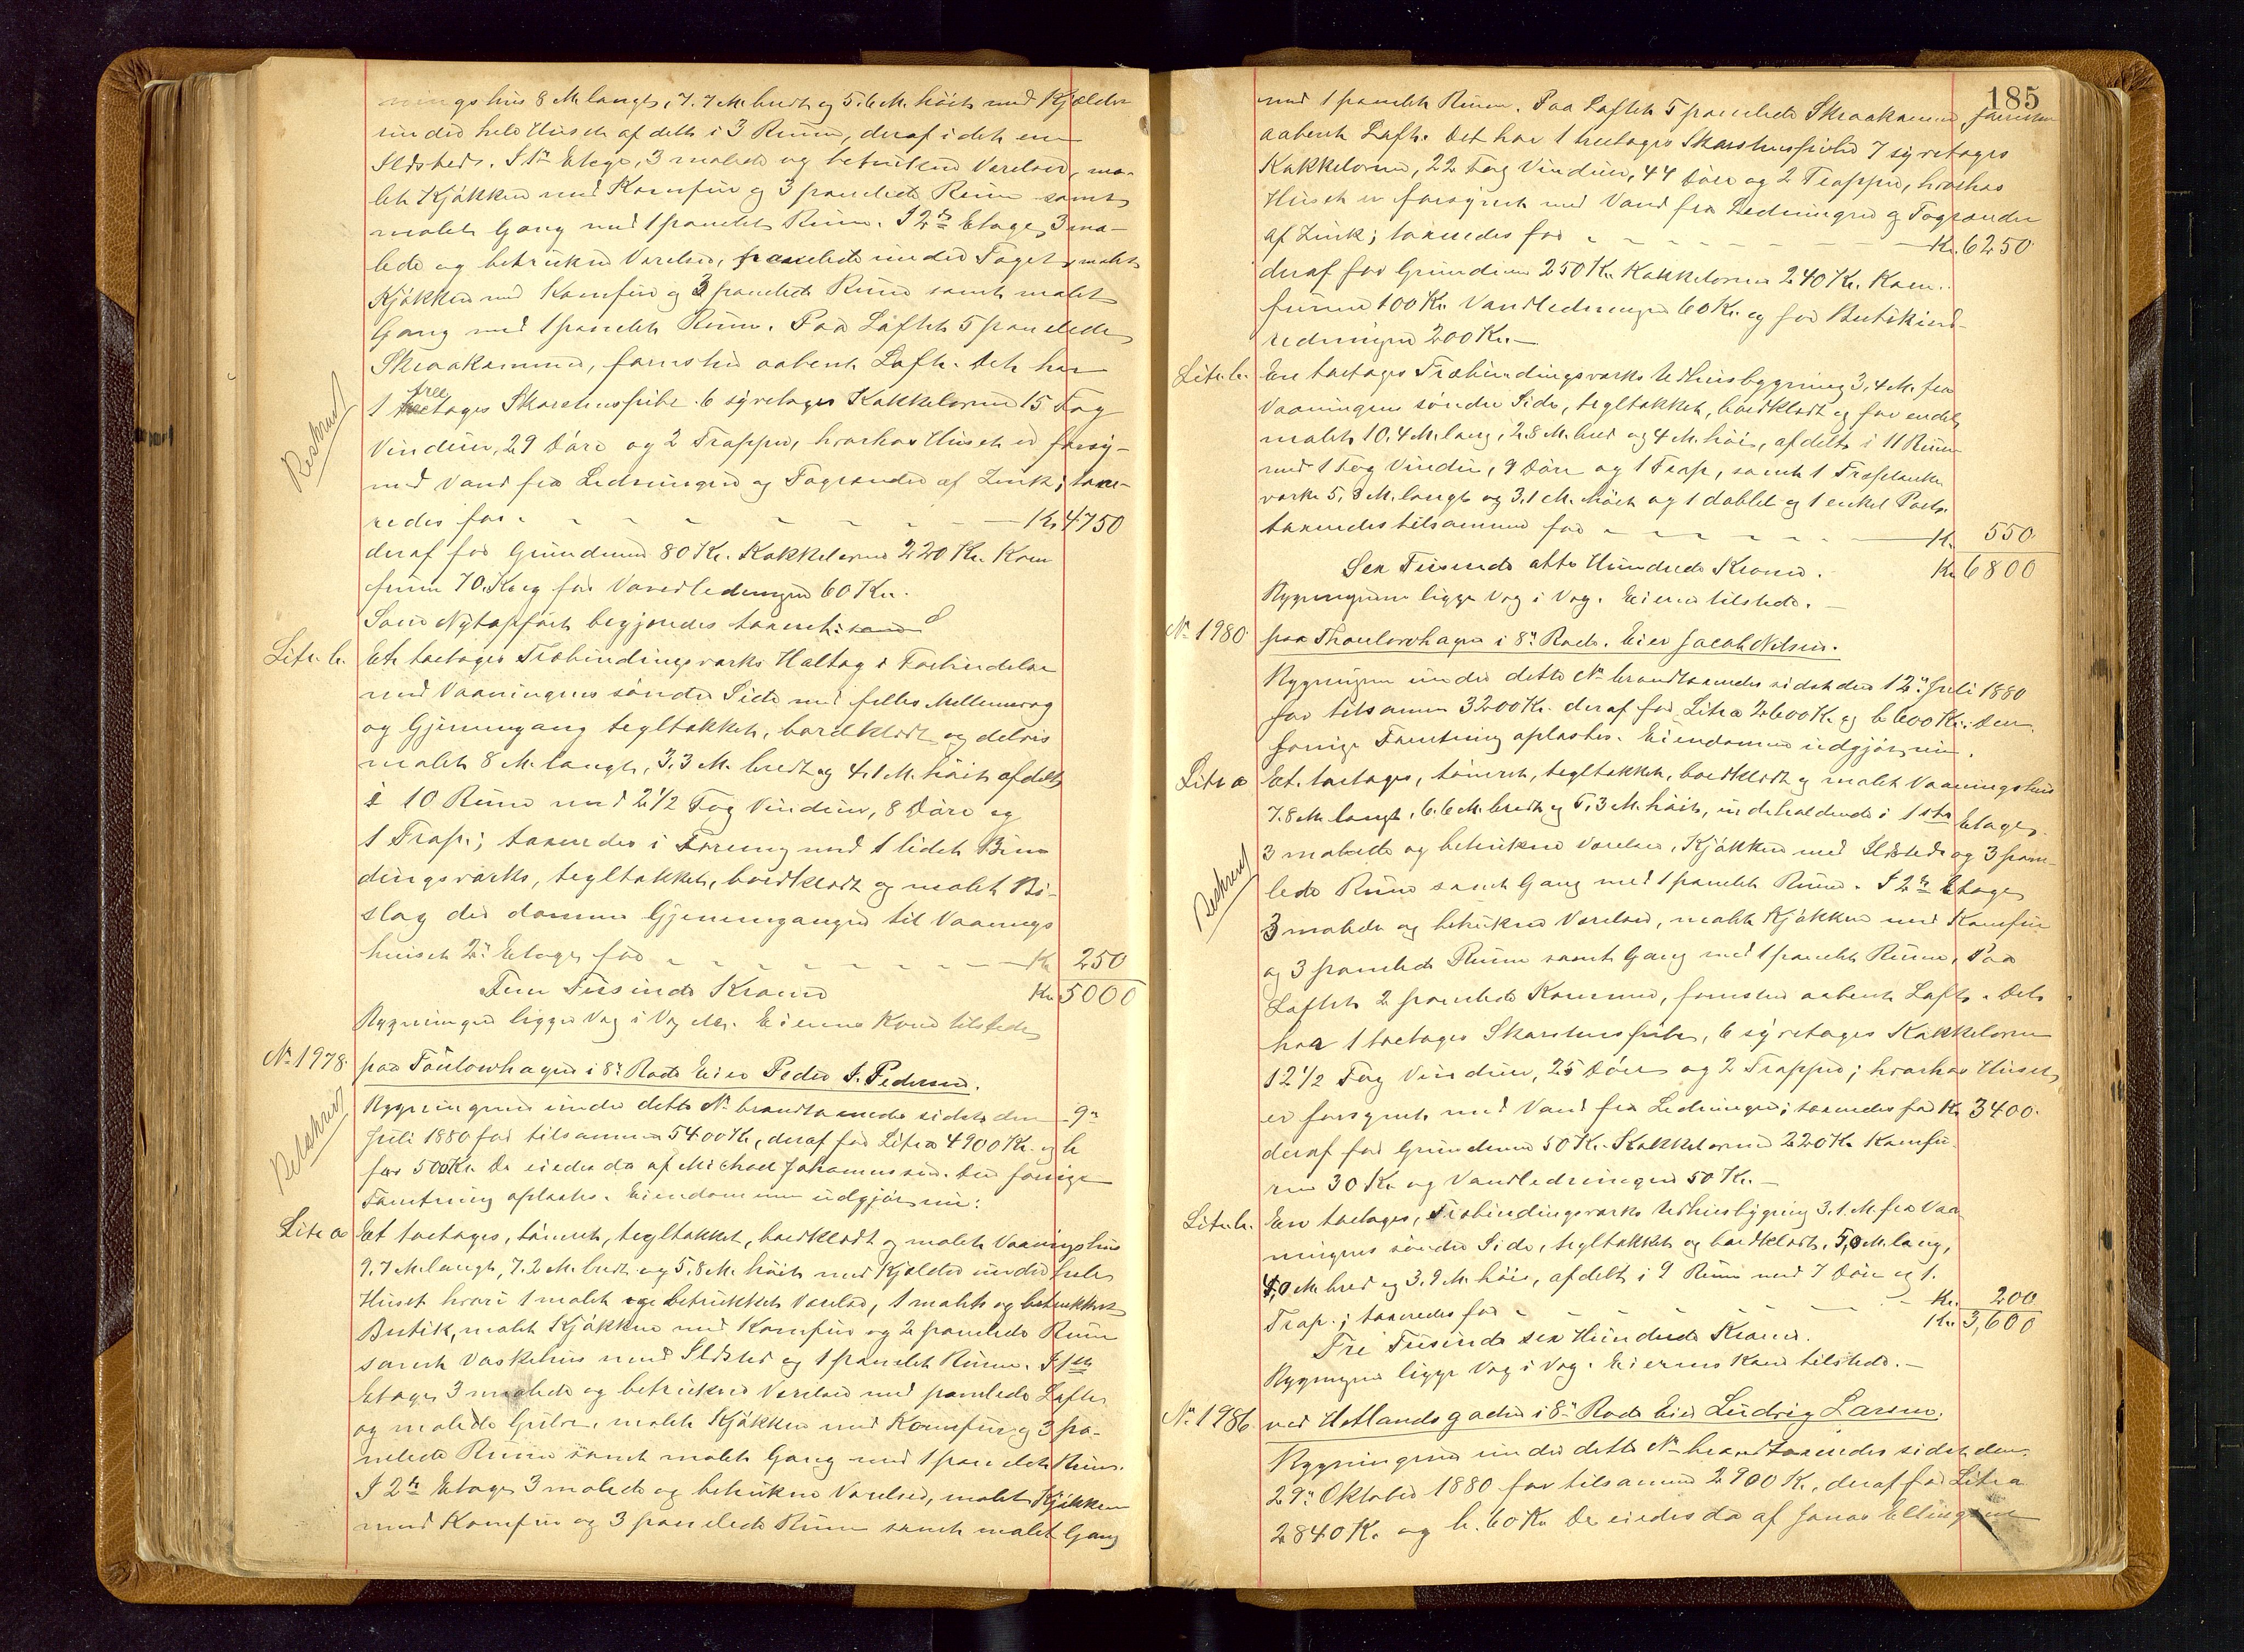 ningshus 8 M. langt, 7.7 M. bredt og 5.6 M. höit med Kjælder
under hele Huset afdelt i 3 Rum, deraf i det ene
Ildsted. I 1ste Etage, 3 malede og betrukne Værelser, ma-
let Kjökken med Komfur og 3 panelede Rum samt
malet Gang med 1 panelet Rum. I 2den Etage 3 ma-
lede og betrukne Værelser, panelede under Taget, malet
Kjökken med Komfur og 3 panelede Rum samt malet
Gang med 1 panelet Rum. Paa Loftet 5 panelede
Skraakammer, foruden aabent Loft. Det har
1 treetages Skorstenspibe 6 syretages Kakkelovne 15 Fag
Beskrevet
Vinduer, 29 Döre og 2 Trapper, hvorhos Huset er forsy-
net Vand fra Ledningen og Tagrender af Zink; taxe-
redes for - - - - Kr. 4750
deraf for Grunden 80 Kr. Kakkelovne 220 Kr. Kom
furer 70 Kr. og for Vandledningen 60 Kr.
Som Nytopfört begjærdes taxeret:
Litr. b. Et toetages Træbindingsværks Haltag i Forbindelse
med Vaaningens söndre Side med fælles Mellemvæg
og Gjennemgang tegltækket, bordklædt og delvis
malet 8 M. langt, 3,3 M. bredt og 4,1 M. höit afdelt
i 10 Rum med 2½ Fag Vinduer, 8 Döre og
1 Trap; taxeredes i Forening med 1 lidet Bin
dingsværks, tegltækket, bordklædt og malet Bi-
slag der danner Gjennemgangen til Vaanings
huset 2den Etage for - - - Kr. 250
Fem Tusinde Kroner Kr. 5000
Bygningerne ligger Væg i Væg. Eierens Kone tilstede
No 1978. paa Toulowhagen i 8de Rode Eier Peder I. Pedersen.
Beskrevet
Bygningerne under dette No brandtaxeredes sidst den 9de
Juli 1880 for tilsammen 5400 Kr, deraf for Litr a 4900 Kr. og b
for 500 Kr. De eiedes da af Michael Johannessen. Den forrige
Taxering oplæstes. Eiendommen udgjör nu:
Litr a Et toetages, tömret, tegltækket, bordklædt og malet Vaaningshus
9.7 M. langt, 7.2 M. bredt og 5.8 M. höit med Kjælder under hele
Huset hvori 1 malet og betrukket Værelse, 1 malet og betrukket
Butik, malet Kjökken med Komfur og 2 panelede Rum
samt Vaskehus med Ildsted og 1 panelet Rum. I 1ste
Etage 3 malede og betrukne Værelser med panelede Lofter
og malede Gulve, malet Kjökken med Komfur og 3 pa-
nelede Rum samt malet Gang med 1 panelet Rum.
I 2den Etage 3 malede og betrukne Værelser, malet Kjökken
med Komfur og 3 panelede Rum samt malet Gang
185
med 1 panelet Rum. Paa Loftet 5 panelede Skraakammer foruden
aabent Loft. Det har 1 treetages Skorstenspibe 7 syretages
Kakkelovne, 22 Fag Vinduer, 44 Döre og 2 Trapper, hvorhos
Huset er forsynet med Vand fra Ledningen og Tagrender
af Zink; taxeredes for - - - Kr. 6250
deraf for Grunden 250 Kr. Kakkelovne 240 Kr. Kom-
furene 100 Kr. Vandledningen 60 Kr. og for Butikind-
redningen 200 Kr.
Litr. b. En toetages Træbindingsværks Udhusbygning 3,4 M. fra
Vaaningens söndre Side, tegltækket, bordklædt og for endel
malet 10,4 M. lang, 2,8 M. bred og 4 M. höi, afdelt i 11 Rum
med 1 Fag Vindu, 9 Döre og 1 Trap, samt 1 Træplanke
værk 5,8 M. langt og 3,1 M. höit og 1 dobbelt og 1 enkel Port.
taxeredes tilsammen for - - - Kr. 550
Sex Tusinde otte Hundrede Kroner. Kr 6800
Bygningerne ligger Væg i Væg. Eieren tilstede.
No 1980 paa Thoulowhagen i 8de Rode. Eier Jacob Nilsen.
Bygningerne under dette No brandtaxeredes sidst den 12te Juli 1880
for tilsammen 3200 Kr. deraf for Litr a 2600 Kr. og b 600 Kr. Den
forrige Taxering oplæstes. Eiendommen udgjör nu.
Litr a Et toetages, tömret, tegltækket, bordklædt og malet Vaaningshus
7.8 M. langt, 6.6 M. bredt og 5,3 M. höit, indeholdende i 1ste Etage
Beskrevet
3 malede og betrukne Værelser, Kjökken med Ildsted og 3 pane-
lede Rum samt Gang med 1 panelet Rum. I 2den Etage
3 malede og betrukne Værelser, malet Kjökken med Komfur
og 3 panelede Rum samt Gang med 1 panelet Rum. Paa
Loftet 2 panelede Kammer, foruden aabent Loft. Det
har 1 toetages Skorstenspibe, 6 syretages Kakkelovne
12½ Fag Vinduer, 25 Döre og 2 Trapper; hvorhos Huset
er forsynet med Vand fra Ledningen; taxeredes for Kr. 3400.
deraf for Grunden 50 Kr. Kakkelovne 220 Kr. Komfu-
rene 30 Kr. og Vandledningen 50 Kr.
Litr. b. En toetages, Træbindingsværks Udhusbygning 3.1. M. fra Vaa
ningens söndre Side, tegltækket og bordklædt, 5,0 M. lang,
4,0 M. bred og 3.9 M. höi, afdelt i 9 Rum med 7 Döre og 1.
Trap; taxeredes for - - - Kr. 200
Tri Tusinde sex Hundrede Kroner. Kr. 3,600
Bygningerne ligger Væg i Væg. Eierens Kone tilstede.
No 1986. ved Hetlandsgaden i 8de Rode Eier Ludvig Larsen.
Bygningerne under dette No brandtaxeredes sidst den
29de Oktober 1880 for tilsammen 2900 Kr., deraf for Litr a
2840 Kr. og b. 60 Kr. De eiedes da af Jonas Ellingsen